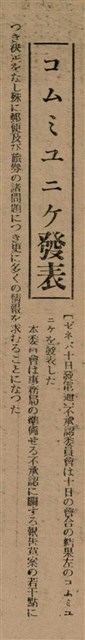 コムミユニケ發表
【ゼネバ十日發電通】不承認委員會は十日の會合の結果左のコムミユ
ニケを發表した
本委員會は事務局の準備せる不承認に關する報告草案の若干點に
つき決定をなし殊に郵便及び旅券の諸問題につき更に多くの情報を求むることになつた